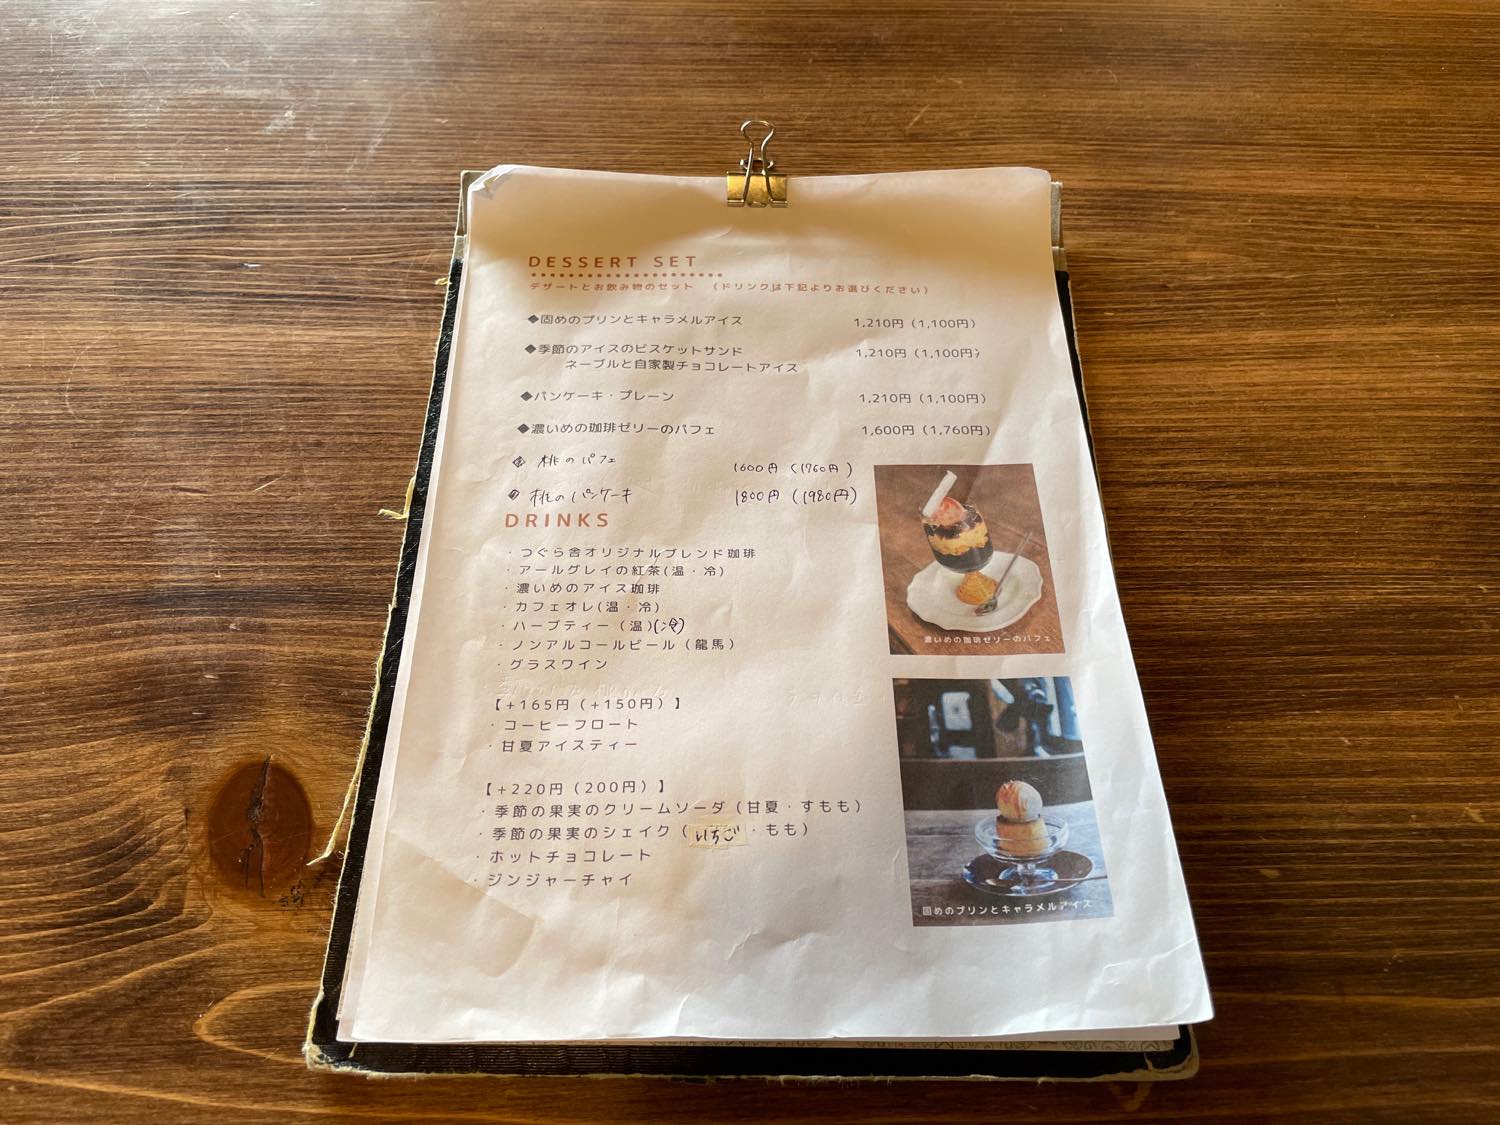 DESSERT SET
デザートとお飲み物のセット （ドリンクは下記よりお選びください）
◆固めのプリンとキャラメルアイス 1,210円（1,100円）
◆季節のアイスのビスケットサンド 1,210円（1,100円）
ネーブルと自家製チョコレートアイス
◆パンケーキ・プレーン 1,210円（1,100円）
◆濃いめの珈琲ゼリーのパフェ 1,600円（1,760円）
◆ 桃のパフェ 1600円（1760円）
◆ 桃のパンケーキ 1800円（1980円）
DRINKS
・つぐら舎オリジナルブレンド珈琲
・アールグレイの紅茶(温・冷)
・濃いめのアイス珈琲
・カフェオレ(温・冷)
・ハーブティー（温)(冷)
・ノンアルコールビール（龍馬）
・グラスワイン
【+165円（+150円）】
・コーヒーフロート
・甘夏アイスティー
【+220円（200円）】
・季節の果実のクリームソーダ（甘夏・すもも）
・季節の果実のシェイク（いちご・もも）
・ホットチョコレート
・ジンジャーチャイ
濃いめの珈琲ゼリーのパフェ
固めのプリンとキャラメルアイス